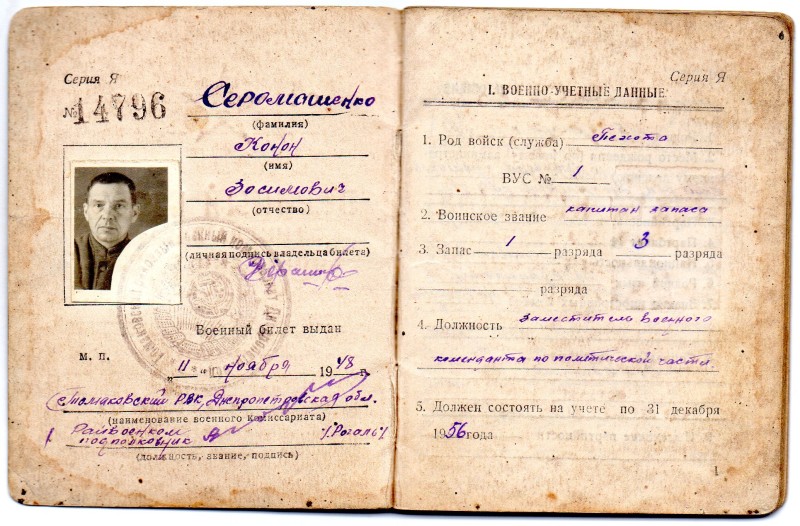 Серия Я
№ 14796
Серомашенко
(фамилия)
Конон
(имя)
Зосимович
(отчество)
(личная подпись владельца билета)
Военный билет выдан
М. П.
„11“ ноября 1948 г.
Томаковский РВК, Днепропетровская обл.
(наименование военного комиссариата)
Райвоенком
подполковник /Рогаль/
(должность, звание, подпись)
Серия Я
I. ВОЕННО-УЧЕТНЫЕ ДАННЫЕ
1. Род войск (служба) Пехота
ВУС № 1
2. Воинское звание капитан запаса
3. Запас 1 разряда 3 разряда
разряда
4. Должность Заместитель военного
коменданта по политической части.
5. Должен состоять на учете по 31 декабря
1956 года
1